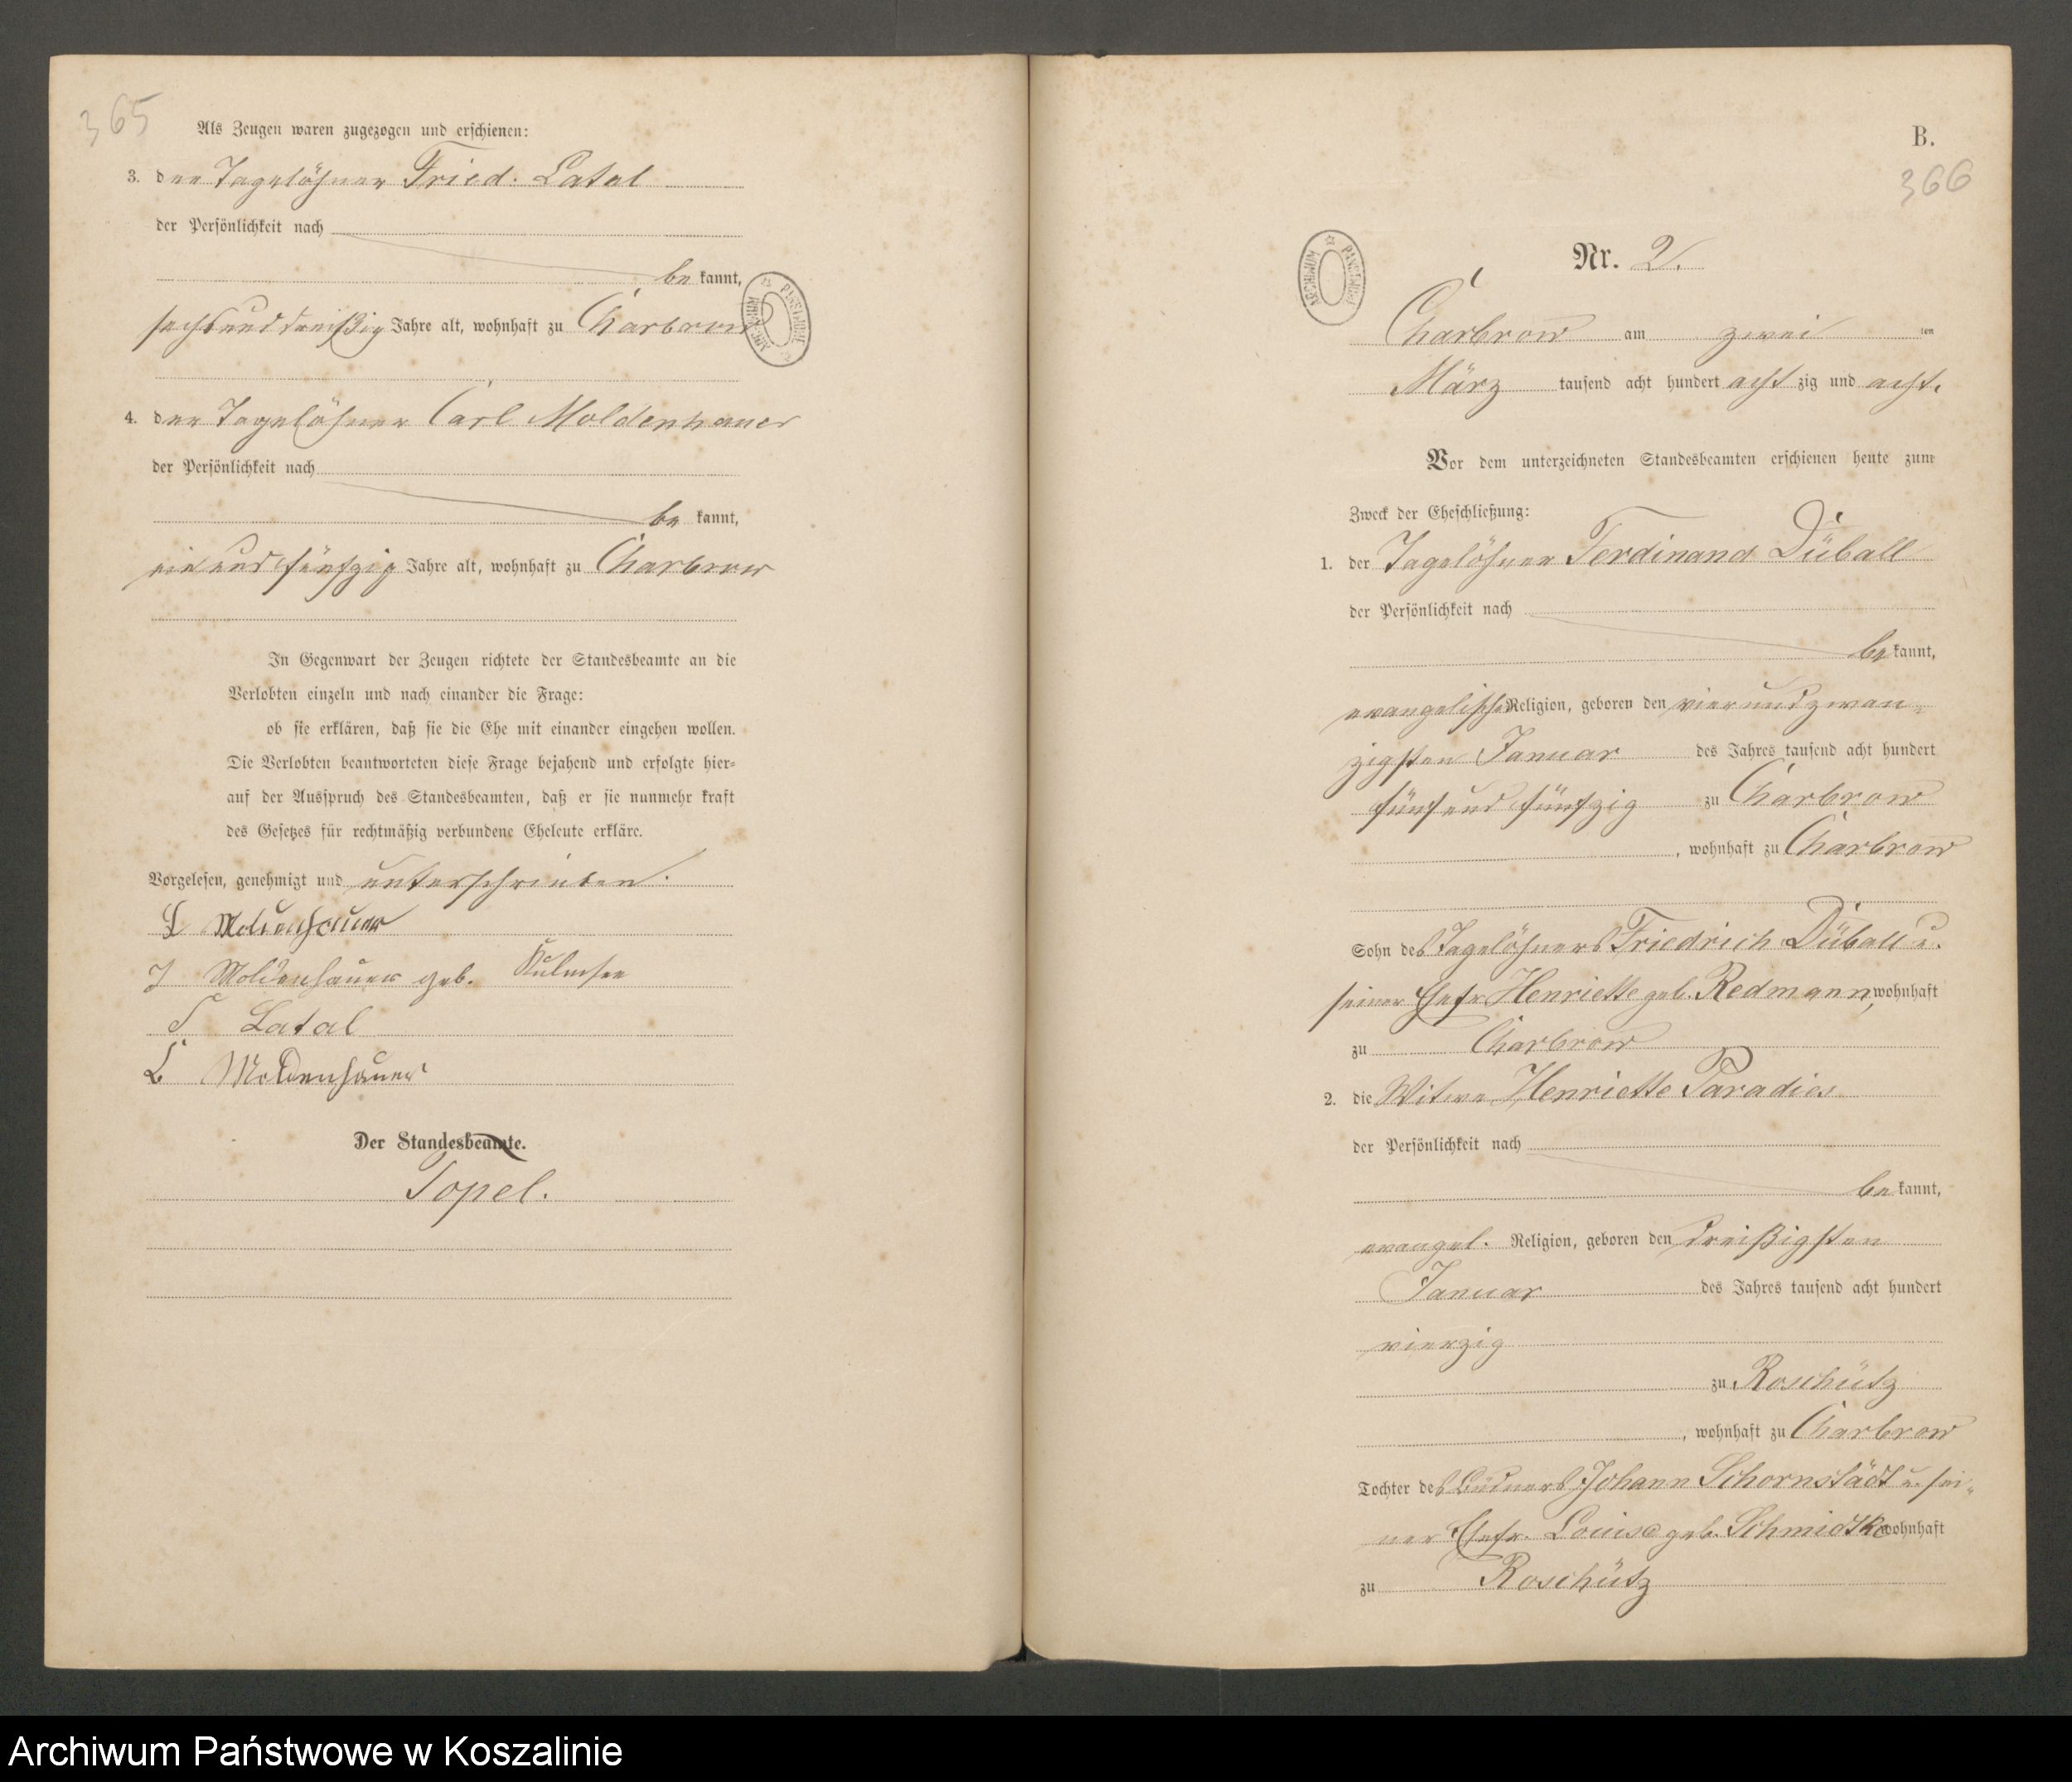 365
Als Zeugen waren zugezogen und erschienen:
3. der Tagelöhner Fried. Latal
der Persönlichkeit nach
be kannt,
sechsunddreißig Jahre alt, wohnhaft zu Charbrow
4. der Tagelöhner Carl Moldenhauer
der Persönlichkeit nach
be kannt,
einundfünfzig Jahre alt, wohnhaft zu Charbrow
In Gegenwart der Zeugen richtete der Standesbeamte an die
Verlobten einzeln und nach einander die Frage:
ob sie erklären, daß sie die Ehe mit einander eingehen wollen.
Die Verlobten beantworteten diese Frage bejahend und erfolgte hier-
auf der Ausspruch des Standesbeamten, daß er sie nunmehr kraft
des Gesetzes für rechtmäßig verbundene Eheleute erkläre.
Vorgelesen, genehmigt und unterschrieben.
Moldenhauer
J Moldenhauer geb. Kulmsee
F Latal
C Moldenhauer
Der Standesbeamte.
Topel.
B.
366
Nr. 2.
ARCHIWUM PAŃSTWOWE
Charbrow am zwei ten
März tausend acht hundert acht zig und acht.
Vor dem unterzeichneten Standesbeamten erschienen heute zum
Zweck der Eheschließung:
1. der Tagelöhner Ferdinand Düball
der Persönlichkeit nach
be kannt,
evangelischer Religion, geboren den vierundzwan-
zigsten Januar des Jahres tausend acht hundert
fünfundfünfzig zu Charbrow
, wohnhaft zu Charbrow
Sohn des Tagelöhners Friedrich Düball u.
seiner Ehefr. Henriette geb. Redmann, wohnhaft
zu Charbrow
2. die Witwe Henriette Paradies
der Persönlichkeit nach
be kannt,
evangel. Religion, geboren den dreißigsten
Januar des Jahres tausend acht hundert
vierzig
zu Roschütz
, wohnhaft zu Charbrow
Tochter des Büdners Johann Schornstädt u. sei-
ner Ehefr. Louise geb. Schmidtke wohnhaft
zu Roschütz
Archiwum Państwowe w Koszalinie